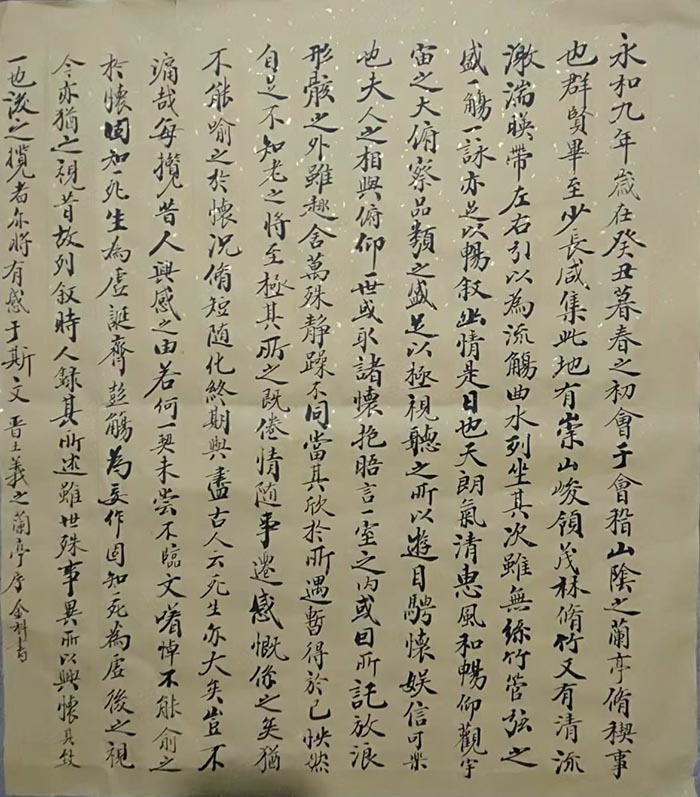 永和九年歲在癸丑暮春之初會于會稽山陰之蘭亭脩稧事
也群賢畢至少長咸集此地有崇山峻領茂林脩竹又有清流
激湍暎帶左右引以為流觴曲水列坐其次雖無絲竹管弦之
盛一觴一詠亦足以暢叙幽情是日也天朗氣清惠風和暢仰觀宇
宙之大俯察品類之盛足以極視聽之所以遊目騁懷娛信可樂
也夫人之相與俯仰一世或取諸懷抱晤言一室之內或因所託放浪
形骸之外雖趣舍萬殊静躁不同當其欣於所遇暫得於己怏然
自足不知老之將至極其所之既倦情随事遷感慨係之矣猶
不能喻之於懷況脩短随化終期與盡古人云死生亦大矣豈不
痛哉每攬昔人興感之由若何一契未嘗不臨文嗟悼不能俞之
於懷固知一死生為虛誕齊彭觴為妄作固知死為虛後之視
今亦猶之視昔故列叙時人錄其所述雖世殊事異所以興懷其致
一也後之攬者亦將有感于斯文 晋王羲之蘭亭序金科書